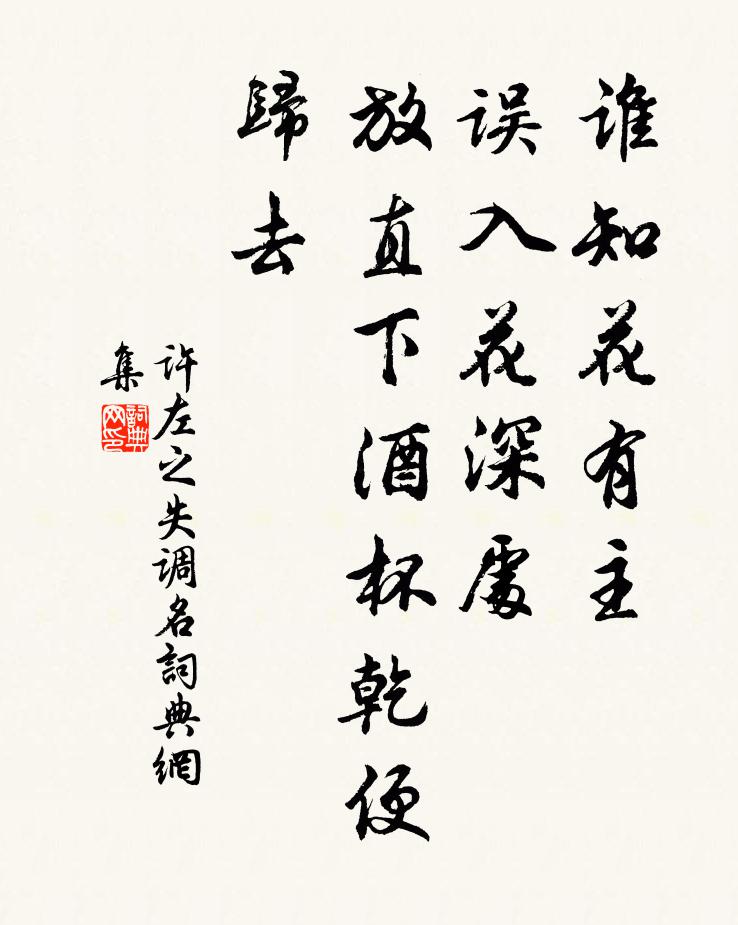 谁知花有主
误入花深處
放直下酒杯乾便
歸去
许左之失调名詞典網
集
詞典网印